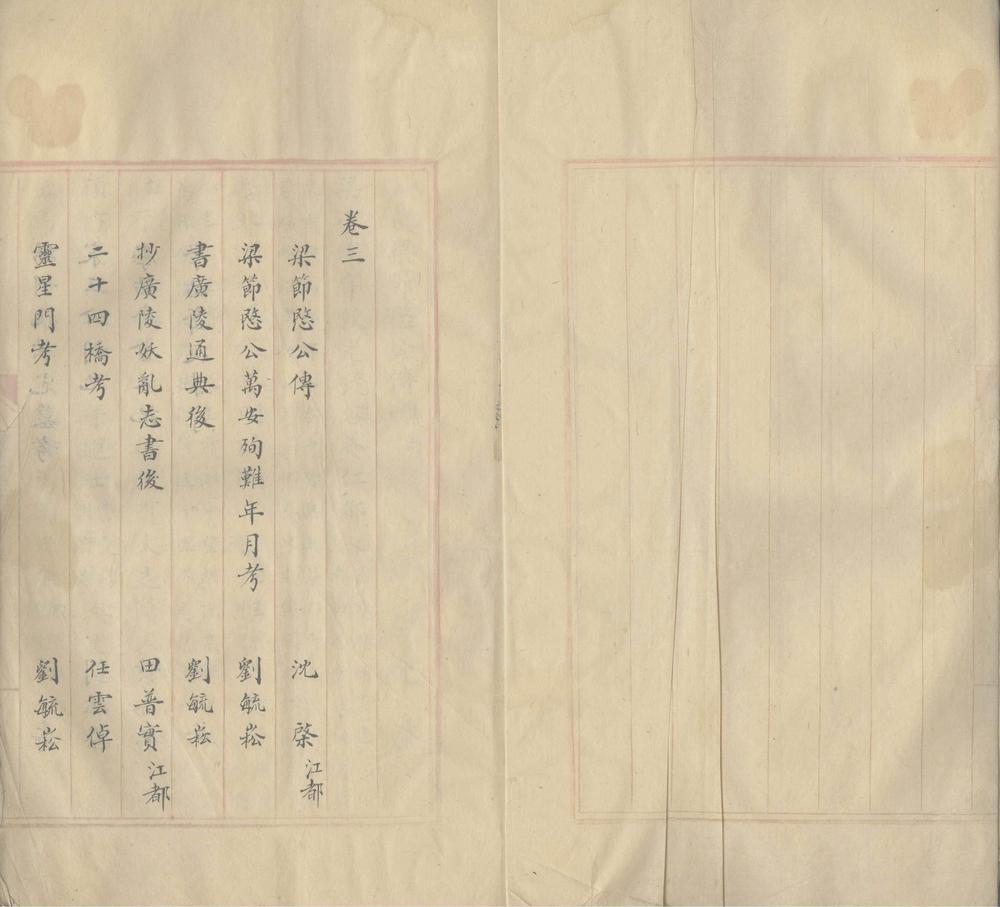 卷三
梁節愍公傳 沈棨江都
梁節愍公萬安殉難年月考 劉毓崧
書廣陵通典後 劉毓崧
抄廣陵妖亂志書後 田普實江都
二十四橋考 任雲倬
靈星門考 劉毓崧